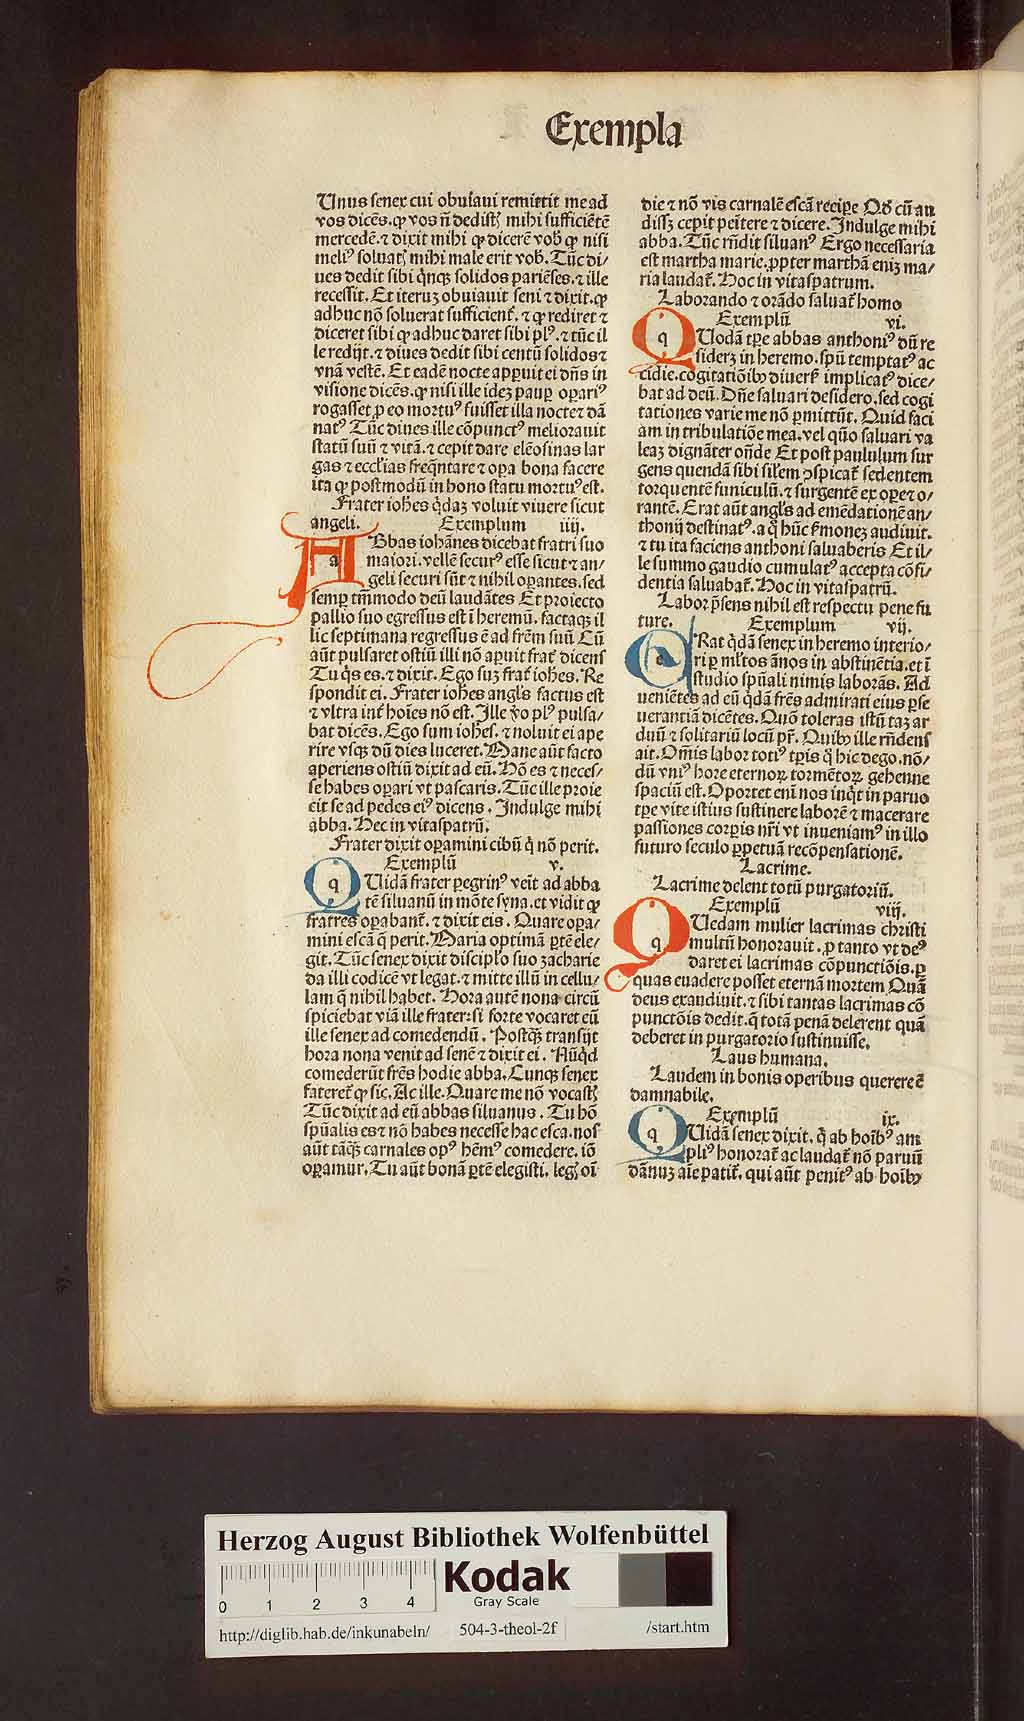 Exempla
Unus senex cui obuiaui remittit me ad
vos dicēs. ꝙ vos n̄ dedistꝭ mihi sufficiētē
mercedē. ⁊ dixit mihi ꝙ dicerē vob̾ ꝙ nisi
meliꝰ soluatꝭ mihi male erit vob̾. Tūc di/
ues dedit sibi q̇nqꝫ solidos pariēses. ⁊ ille
recessit. Et iteruꝫ obuiauit seni ⁊ dixit. ꝙ
adhuc nō soluerat sufficient̾. ⁊ ꝙ rediret ⁊
diceret sibi ꝙ adhuc daret sibi plꝰ. ⁊ tūc il
le redijt. ⁊ diues dedit sibi centū solidos ⁊
vnā vestē. Et eadē nocte apꝑuit ei dn̄s in
visione dicēs. ꝙ nisi ille ideꝫ pauꝑ oꝑariꝰ
rogasset ꝓ eo mortuꝰ fuisset illa nocte ⁊ dā
natꝰ Tūc diues ille cōpunctꝰ meliorauit
statū suū ⁊ vitā. ⁊ cepit dare elēosinas lar
gas ⁊ eccl'ias freq̄ntare ⁊ oꝑa bona facere
ita ꝙ postmodū in bono statu mortuꝰ est.
Frater ioh̄es q̇daꝫ voluit viuere sicut
angeli. Exemplum iiij.
a Bbas iohānes dicebat fratri suo
maiori. vellē securꝰ esse sicut ⁊ an/
geli securi sūt ⁊ nihil oꝑantes. sed
semꝑ tm̄modo deū laudātes Et proiecto
pallio suo egressus est ī heremū. factaqꝫ il
lic septimana regressus ē ad frēm suū Cū
aūt pulsaret ostiū illi nō aꝑuit frat̾ dicens
Tu q̇s es. ⁊ dixit. Ego suꝫ frat̾ ioh̄es. Re
spondit ei. Frater ioh̄es angl's factus est
⁊ vltra int̾ hoīes nō est. Ille v̾o plꝰ pulsa/
bat dicēs. Ego sum ioh̄es. ⁊ noluit ei ape
rire vsqꝫ dū dies luceret. Mane aūt facto
aperiens ostiū dixit ad eū. Hō es ⁊ neces/
se habes oꝑari vt pascaris. Tūc ille proie
cit se ad pedes eiꝰ dicens. Indulge mihi
abba. Hec in vitaspatrū.
Frater dixit oꝑamini cibū q̇ nō perit.
Exemplū v.
q Uidā frater ꝑegrinꝰ veīt ad abba
tē siluanū in mōte syna. et vidit ꝙ
fratres oꝑabant̾. ⁊ dixit eis. Quare oꝑa/
mini escā q̄ perit. Maria optimā ꝑtē ele/
git. Tūc senex dixit discip'lo suo zacharie
da illi codicē vt legat. ⁊ mitte illū in cellu/
lam q̄ nihil habet. Hora autē nona circū
spiciebat viā ille frater: si forte vocaret eū
ille senex ad comedendū. Postqꝫ transijt
hora nona venit ad senē ⁊ dixit ei. Nūq̇d
comederūt frēs hodie abba. Cunqꝫ senex
fateret̾ ꝙ sic. Ac ille. Quare me nō vocastꝭ
Tūc dixit ad eū abbas siluanus. Tu hō
spūalis es ⁊ nō habes necesse hac esca. nos
aūt tāqꝫ carnales opꝰ hēmꝰ comedere. iō
oꝑamur. Tu aūt bonā ꝑtē elegisti. legꝭ oī
die ⁊ nō vis carnalē escā reciꝑe Qḋ cū au
dissꝫ cepit peītere ⁊ dicere. Indulge mihi
abba. Tūc rn̄dit siluanꝰ Ergo necessaria
est martha marie. ꝓpter marthā eniꝫ ma/
ria laudat̾. Hoc in vitaspatrum.
Laborando ⁊ orādo saluat̾ homo
Exemplū vi.
q Uodā tꝑe abbas anthoniꝰ dū re
siderꝫ in heremo. spū temptatꝰ ac
cidie. cogitatiōibꝫ diuers̾ implicatꝰ dice/
bat ad deū. Dn̄e saluari desidero. sed cogi
tationes varie me nō ꝑmittūt. Quid faci
am in tribulatiōe mea. vel qūo saluari va
leaꝫ dignāter on̄de Et post paululum sur
gens quendā sibi sil'em ꝯspicat̾ sedentem
torquentē funiculū. ⁊ surgentē ex oꝑe ⁊ o/
rantē. Erat aūt angl's ad emēdationē an/
thonij destinatꝰ. a q̇ hūc s̾moneꝫ audiuit.
⁊ tu ita faciens anthoni saluaberis Et il/
le summo gaudio cumulatꝰ accepta cōfi/
dentia saluabat̾. Hoc in vitaspatrū.
Labor p̄sens nihil est respectu pene fu
ture. Exemplum vij.
e Rat q̇dā senex in heremo interio/
ri ꝑ ml'tos ānos in abstinētia. et ī
studio spūali nimis laborās. Ad
uenietes ad eū q̇dā frēs admirati eius ꝑse
uerantiā dicētes. Quō toleras istū taꝫ ar
duū ⁊ solitariū locū pr̄. Quibꝫ ille rn̄dens
ait. Om̄is labor totiꝰ tꝑis q̇ hic dego. nō/
dū vniꝰ hore eternoꝝ tormētoꝝ gehenne
spaciū est. Oportet enī nos inq̇t in paruo
tꝑe vite istius sustinere laborē ⁊ macerare
passiones corꝑis nr̄i vt inueniamꝰ in illo
futuro seculo ꝑpetuā recōpensationē.
Lacrime.
Lacrime delent totū purgatoriū.
Exemplū viij.
q Uedam mulier lacrimas christi
multū honorauit. ꝓ tanto vt deꝰ
daret ei lacrimas cōpunctiōis. ꝑ
quas euadere posset eternā mortem Quā
deus exaudiuit. ⁊ sibi tantas lacrimas cō
punctōis dedit. q̄ totā penā delerent quā
deberet in purgatorio sustinuisse.
Laus humana.
Laudem in bonis operibus querere ē
damnabile.
Exemplū ix.
q Uidā senex dixit. q̇ ab hoībꝰ am
pliꝰ honorat̾ ac laudat̾ nō paruū
dānuꝫ aīe patit̾. qui aūt penitꝰ ab hoībꝫ
Herzog August Bibliothek Wolfenbüttel
0 1 2 3 4
Kodak
Gray Scale
http://diglib.hab.de/inkunabeln/ 504-3-theol-2f /start.htm